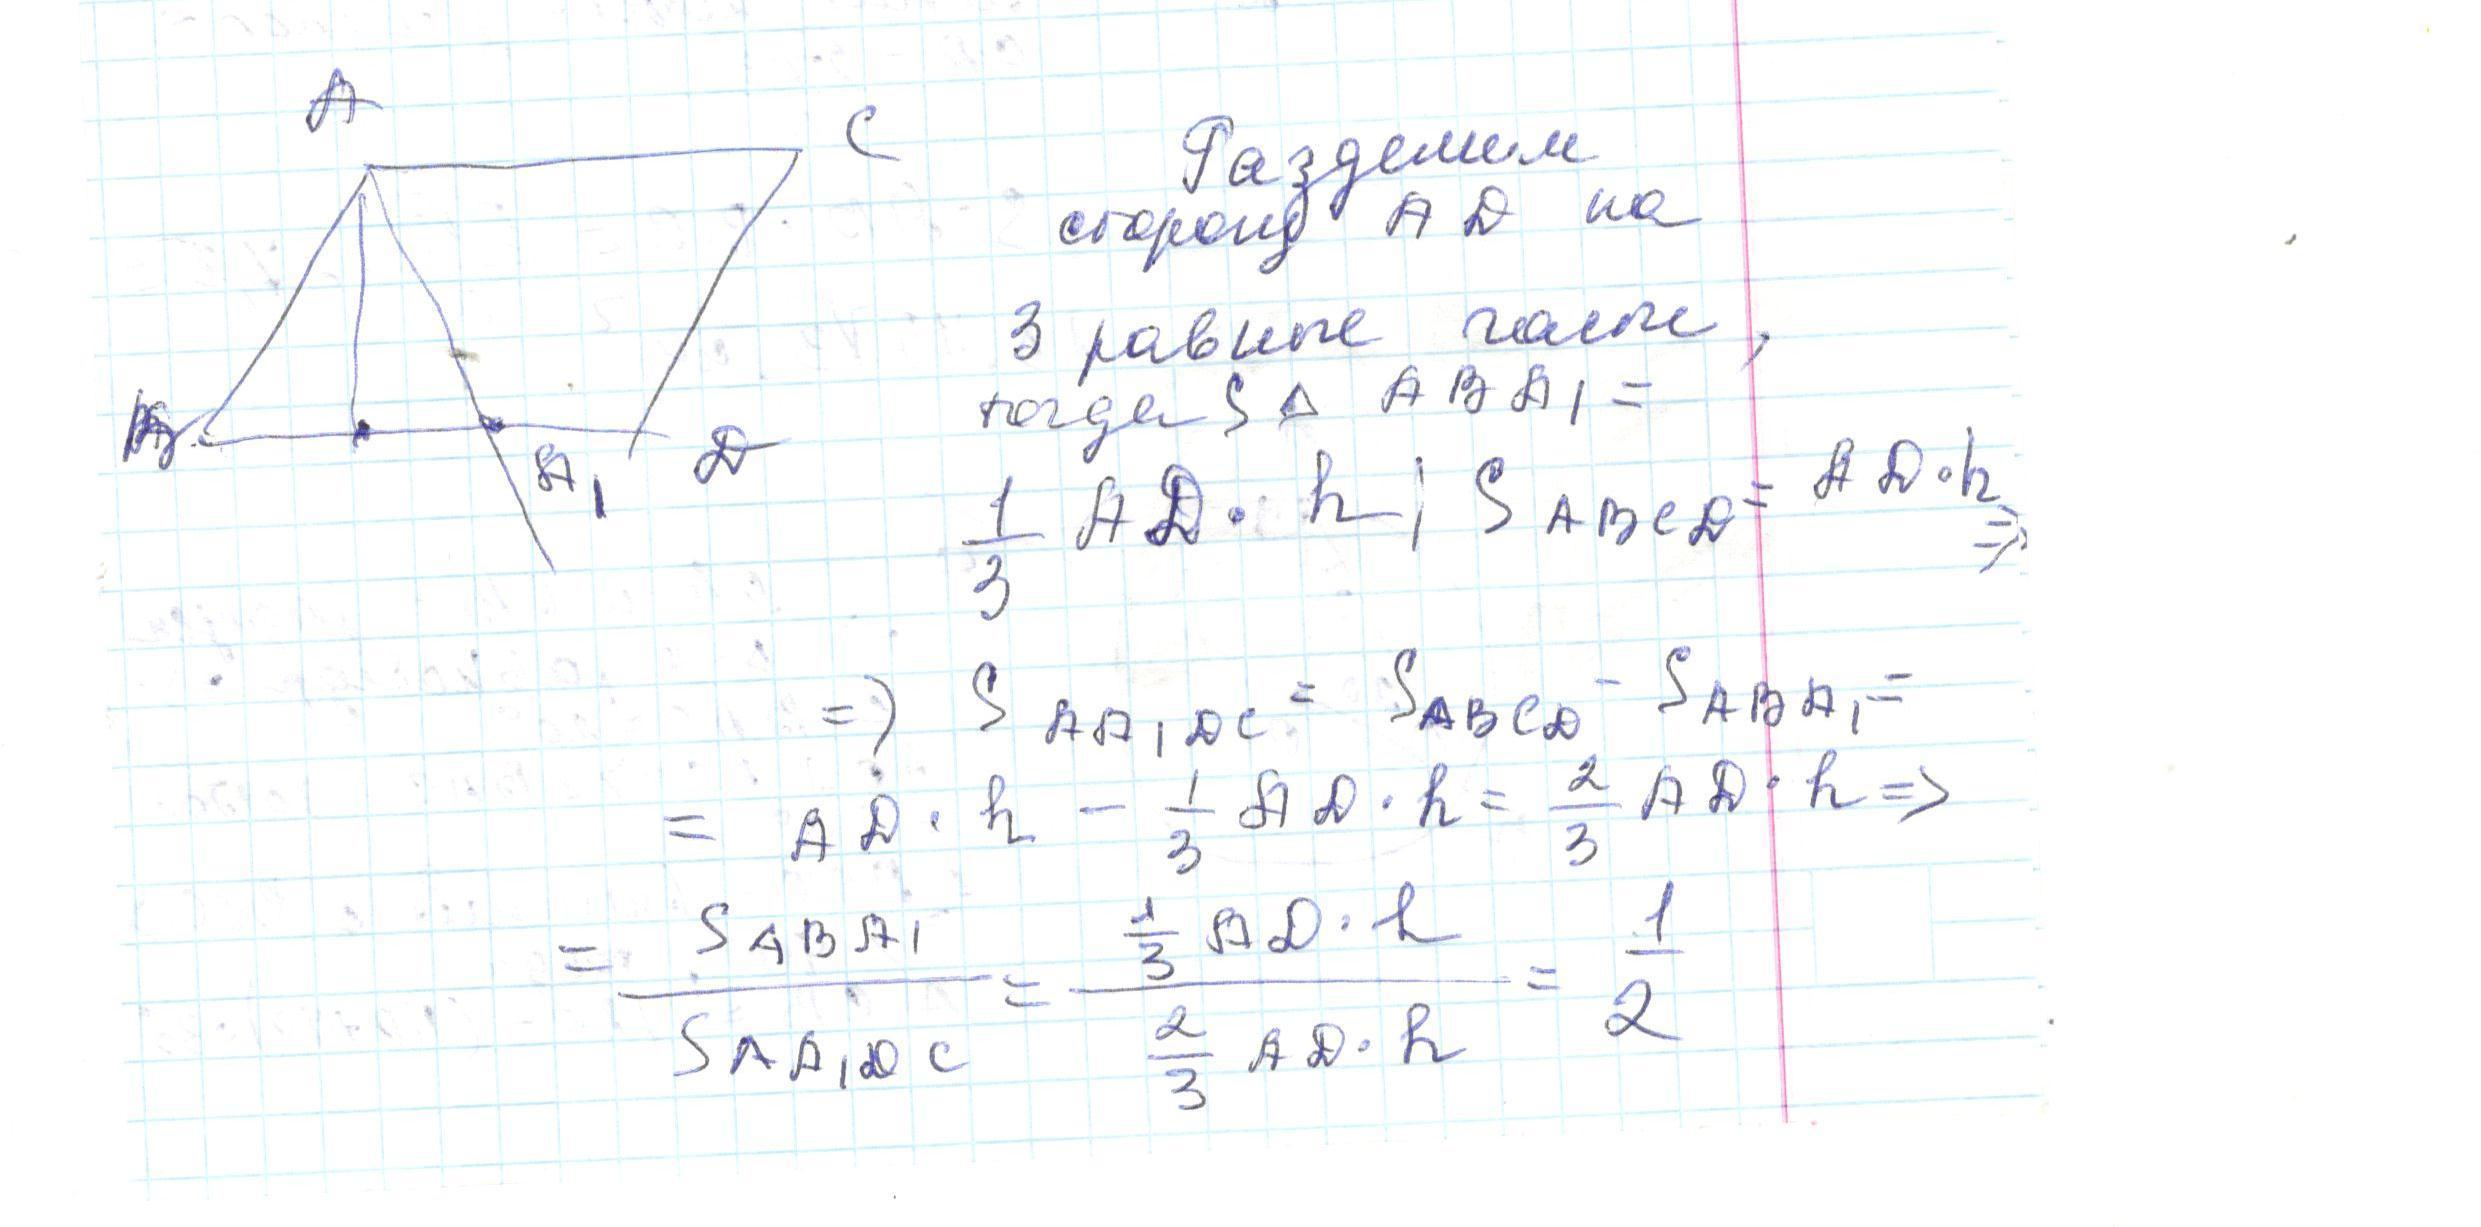 A
C
B
A₁
D
Разделим
сторону AD на
3 равные части,
тогда S△ ABA₁ =
1/3 AD · h; S ABCD = AD · h ⇒
⇒ S AA₁DC = S ABCD - S ABA₁ =
= AD · h - 1/3 AD · h = 2/3 AD · h ⇒
= S ABA₁ / S AA₁DC = 1/3 AD · h / 2/3 AD · h = 1/2